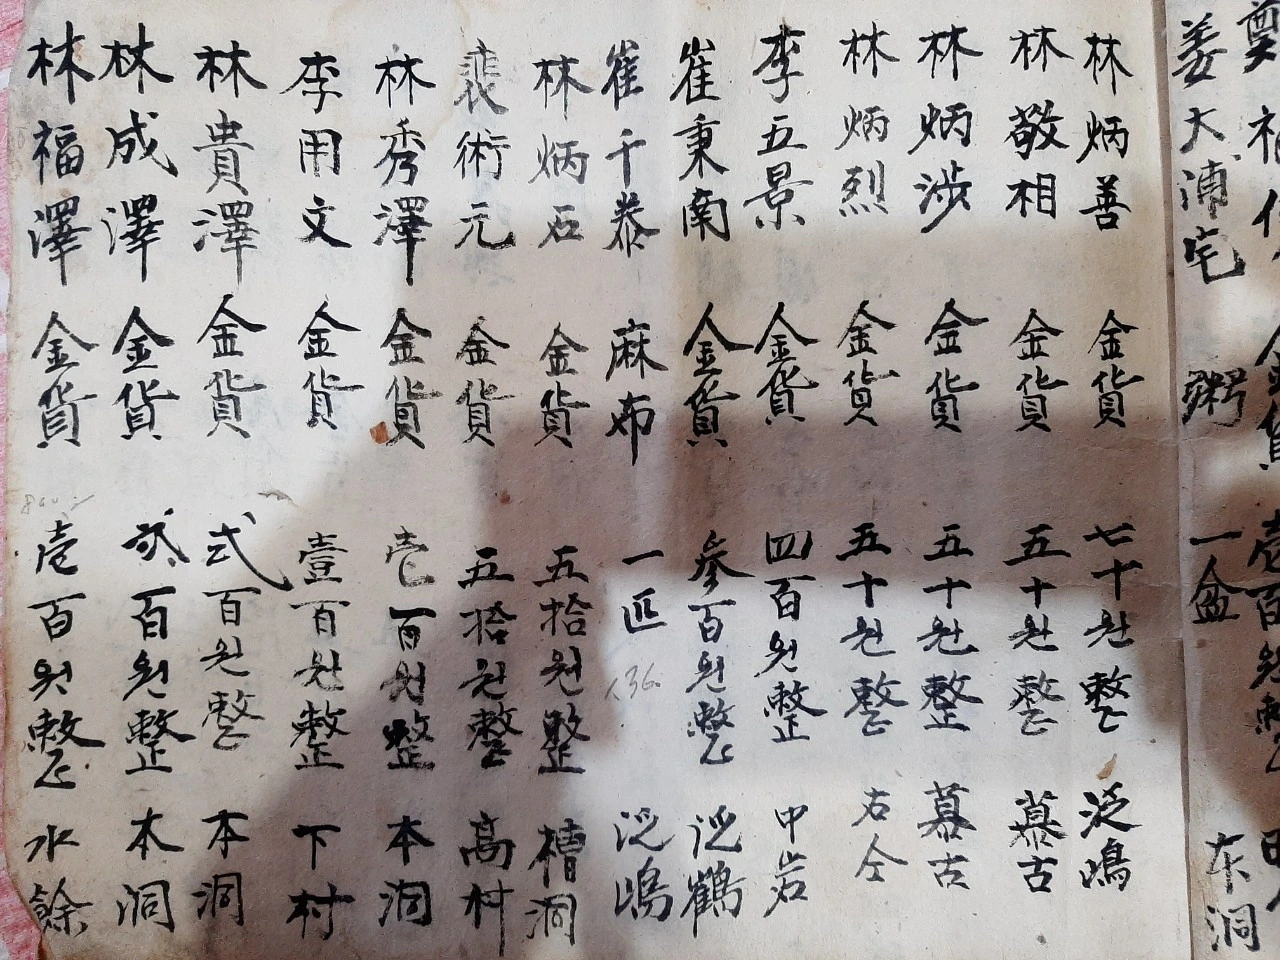 金貨 壱百원整
姜大浦宅 粥 一盆 本洞
林炳善 金貨 七十원整 泛鳴
林敬相 金貨 五十원整 慕古
林炳涉 金貨 五十원整 慕古
林炳烈 金貨 五十원整 右仝
李五景 金貨 四百원整 中岩
崔秉南 金貨 參百원整 泛鶴
崔千泰 麻布 一匹 泛鳴
林炳石 金貨 五拾원整 槽洞
裴術元 金貨 五拾원整 高村
林秀澤 金貨 壱百원整 本洞
李用文 金貨 壹百원整 下村
林貴澤 金貨 弍百원整 本洞
林成澤 金貨 貳百원整 本洞
林福澤 金貨 壱百원整 水餘